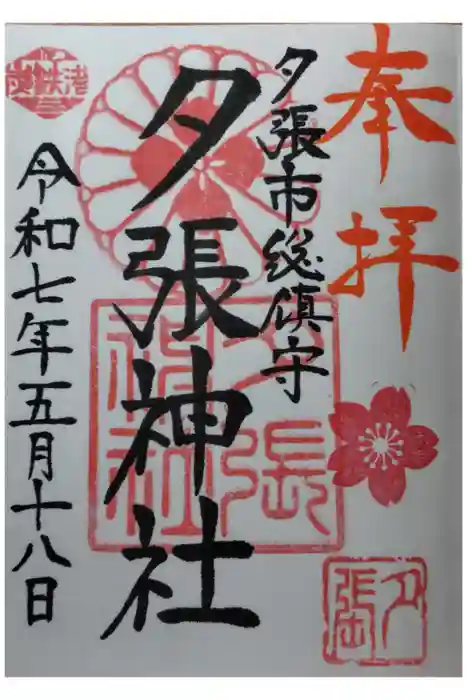 奉拝
夕張市総鎮守
夕張神社
令和七年五月十八日
夕張
神社
夕張